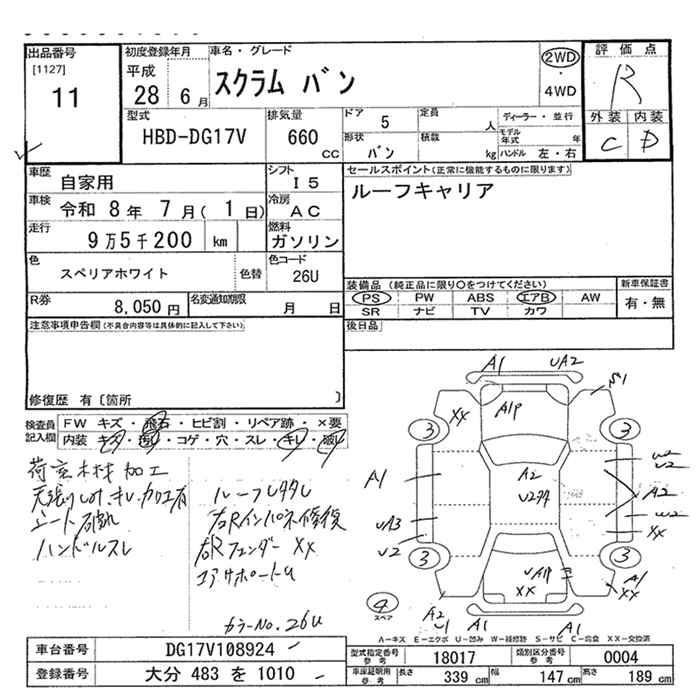 出品番号
[1127]
11
初度登録年月
平成
28 6月
車名・グレード
スクラム バン
2WD
・
4WD
評価点
R
外装 内装
C D
型式
HBD-DG17V
排気量
660
CC
ドア
5
形状
バン
定員
人
積載
kg
ディーラー・並行
モデル年式
年
ハンドル 左・右
車歴
自家用
シフト
I5
車検
令和 8年 7月( 1日)
冷房
AC
走行
9万5千200 km
燃料
ガソリン
色
スペリアホワイト
色替
色コード
26U
R券
8,050円
名変通知期限
月 日
セールスポイント(正常に機能するものに限ります)
ルーフキャリア
装備品 (純正品に限り○をつけてください)
PS PW ABS エアB AW
SR ナビ TV カワ
新車保証書
有・無
後日品
注意事項申告欄(不具合内容等は具体的に記入して下さい)
修復歴 有〔箇所 〕
検査員
記入欄
FW キズ・飛石・ヒビ割・リペア跡・×要
内装 キズ・汚れ・コゲ・穴・スレ・キレ・破れ
荷室木材加工
シート破れ
ハンドルスレ
右Rインパネ修復
右Rフェンダー XX
コアサポートU
カラーNo.26U
A1 UA2
XX A1P
3 3
A1 A2
U2
A2
UA3
U2
XX
3 3
UA1P
XX
A1
XX
4
スペア
A2
A1 A1
A-キズ E-エクボ U-凹み W-補修跡 S-サビ C-腐食 XX-交換済
車台番号
DG17V108924
登録番号
大分 483 を 1010
型式指定番号
参考
18017
類別区分番号
参考
0004
車庫証明用
参考
長さ
339 cm
幅
147 cm
高さ
189 cm